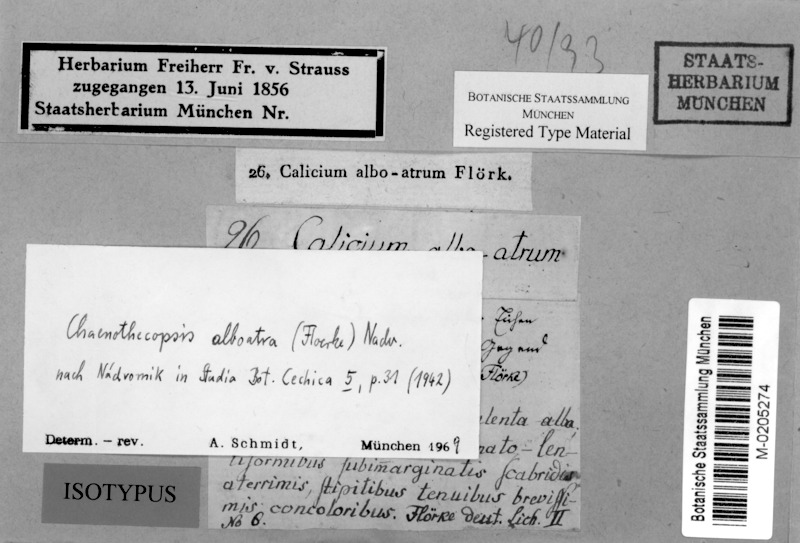 40/93
Herbarium Freiherr Fr. v. Strauss
zugegangen 13. Juni 1856
Staatsherbarium München Nr.
BOTANISCHE STAATSSAMMLUNG
MÜNCHEN
Registered Type Material
STAATS-
HERBARIUM
MÜNCHEN
26. Calicium albo-atrum Flörk.
26. Calicium albo-atrum
Eichen
Gegend
Flörke)
Chaenothecopsis alboatra (Floerke) Nadv.
nach Nádvornik in Studia Bot. Cechica 5, p.31 (1942)
Determ. – rev. A. Schmidt, München 1969
ulenta alba,
nato-len-
tiformibus subimarginatis scabridis
aterrimis, stipitibus tenuibus brevissi-
mis concoloribus. Flörke deut. Lich. II
No 6.
ISOTYPUS
Botanische Staatssammlung München
M-0205274